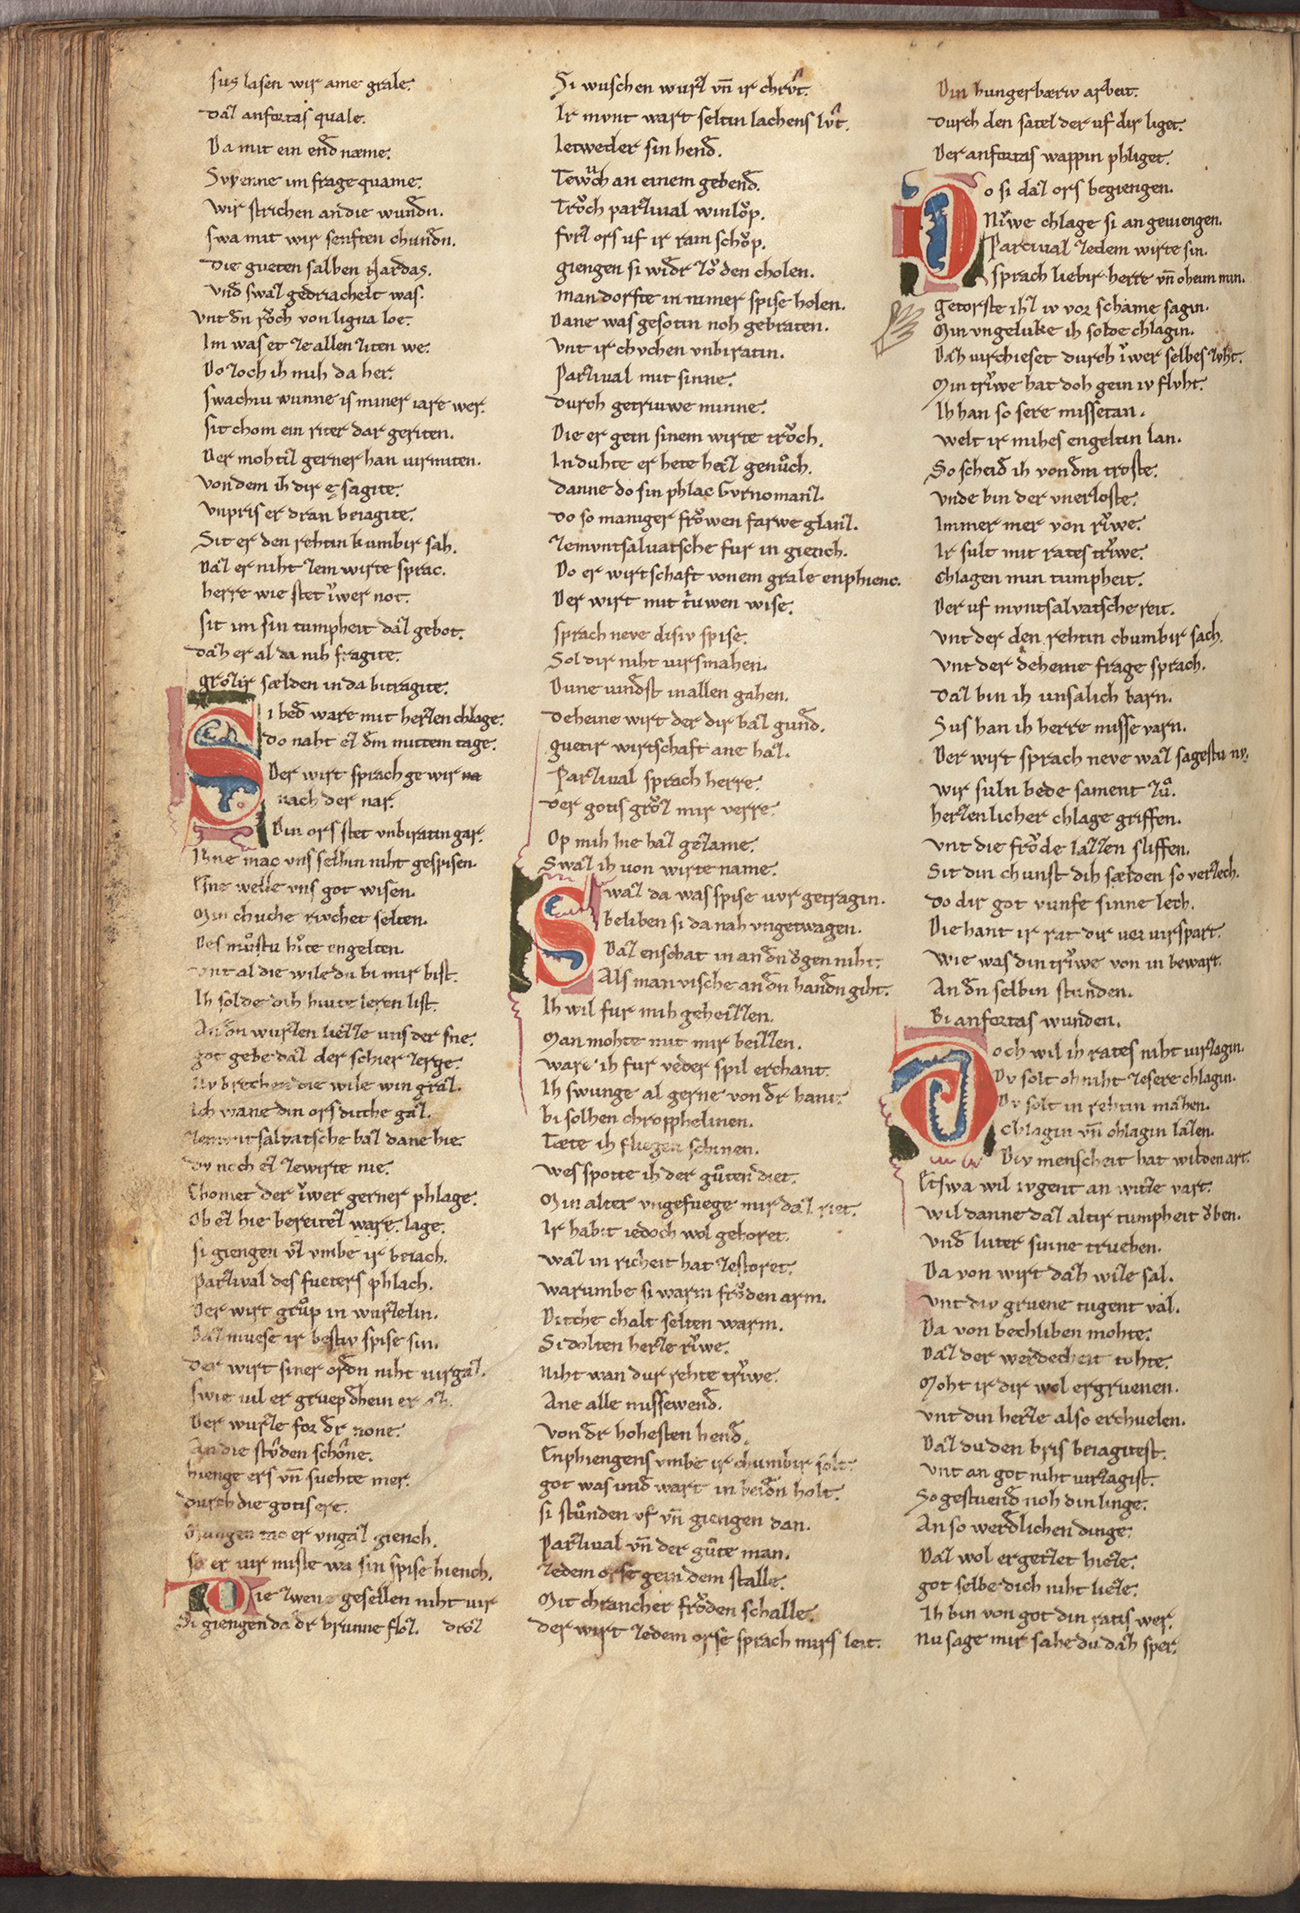 sus lasen wir ame grale.
daz anfortas quale.
Da mit ein end næme.
Swenne im frage quame.
wir strichen an die wundn.
swa mit wir senften chundn.
die gueten salben Nardas.
vnd swaz gedriachelt was.
vnt dn roͮch von ligna loe.
Im was et ze allen ziten we.
Do zoch ih mih da her.
swachiu wunne is miner iare wer.
sit chom ein riter dar geriten.
Der mohtiz gerner han uirmiten.
von dem ih dir e sagite.
vnpris er dran beiagite.
Sit er den rehtin kumbir sah.
Daz er niht zem wirte sprac.
herre wie stet iwer not.
sit im sin tumpheit daz gebot.
daz er al da nih fragite.
grozir sælden in da bitragite.
Si bed ware mit herzen chlage.
do naht ez dm mittem tage.
Der wirt sprach ge wir na
nach der nar.
Din ors stet vnbiratin gar.
Ihne mac vns selbin niht gespisen.
Esne welle vns got wisen.
Min chuche rivchet selten.
Des muͦstu hiͮte engelten.
vnt al die wile du bi mir bist.
Ih solde dih hiute leren list.
An dn wurzen liezze uns der sne.
got gebe daz der schier zerge.
Nv brechen die wile win graz.
Ich wane din ors dicche gaz.
zemuntsalvatsche baz dane hie.
dv noch ez ze wirte nie.
Chomet der iͮwer gerner phlage.
Ob ez hie bereitez ware lage.
si giengen vz vmbe ir beiach.
Parzival des fueters phlach.
Der wirt gruͦp im wurzelin.
Daz muese ir bestiv spise sin.
der wirt siner ordn niht uirgaz.
swie uil er gruep dhein er az.
Der wurze for dr none.
An die studen schone.
hienge ers vn̄ suehte mer.
durch die gotis ere.
Mangen tac er vngaz giench.
so er uir miste wa sin spise hiench.
Die zwene gesellen niht uir
Si giengen da dr brunne floz. droz
Si wuschen wurz vn̄ ir chrvt.
Ir mvnt wart seltin lachens lvt.
Ietweder sin hend.
Tewuͦch an einem gebend.
Troͮch parzival winloͮp.
fvrz ors uf ir ram schoͮp.
giengen si widr zoͮ den cholen.
man dorfte in nimer spise holen.
Dane was gesotin noh gebraten.
vnt ir chvchen vnbiratin.
Parzival mit sinne.
durch getriuwe minne.
Die er gein sinem wirte troͮch.
In duhte er hete baz genuͦch.
danne do sin phlac Gvrnomanz.
do so maniger froͮwen farwe glanz.
zemvntsalvatsche fur in giench.
Do er wirtschaft vonem grale enphienc.
Der wirt mit tuwen wise.
sprach neve disiv spise.
Sol dir niht uirsmahen.
Dune uindst in allen gahen.
deheine wirt der dir baz gund.
guetir wirtschaft ane haz.
Parzival sprach herre.
der gotis groͮz mir verre.
Op mih hie baz gezame.
Swaz ih uon wirte name.
Swaz da was spise uvr getragin.
beliben si da nah vngetwagen.
Daz enschat in an dn oͮgen niht.
Als man vische an dn handn giht.
Ih wil fur mih geheizzen.
Man mohte mit mir beizzen.
ware ih fur veder spil erchant.
Ih swunge al gerne von dr hant.
bi solhen chropphelinen.
Tæte ih fliegen schinen.
wes spotte ih der guͦten diet.
Min alter vngefuege mir daz riet.
Ir habit iedoch wol gehoret.
waz in richeit hat zestoret.
warumbe si warin froͮden arm.
Dicche chalt selten warm.
Si dolten herze riͮwe.
niht wan dur rehte triͮwe.
Ane alle missewend.
Von dr hohesten hend.
Enphiengens vmbe ir chumbir solt.
got was und wart in beidn holt.
si stuͦnden vf vn̄ giengen dan.
Parzival vn̄ der guͦte man.
zedem orse gein dem stalle.
Mit chrancher froͮden schalle.
der wirt zedem orse sprach mirs leit.
Din hungerbæriv arbeit.
durch den satel der uf dir liget.
Der anfortas wappin phliget.
Do si daz ors begiengen.
Niͮwe chlage si an geuiengen.
Parcival zedem wirte sin.
sprach liebir herre vn̄ oheim min.
getorste ihz iv vor schame sagin.
Min vngeluke ih solde chlagin.
Daz uirchieset durch iͮwer selbes zvht.
Min triͮwe hat doh gein iv flvht.
Ih han so sere missetan.
welt ir mihes engeltin lan.
So scheid ih von dm troste.
vnde bin der vnerloste.
Immer mer von riͮwe.
Ir sult mit rates triͮwe.
chlagen min tumpheit.
Der uf mvntsalvatsche reit.
vnt der den rehtin chumbir sach.
vnt der deheine frage sprach.
daz bin ih unsalich barn.
Sus han ih herre misse varn.
Der wirt sprach neve waz sagestu nv.
wir suln bede sament zuͦ.
herzenlicher chlage griffen.
vnt die froͮde lazzen sliffen.
Sit din chunst dih sælden so verzech.
do dir got vunfe sinne lech.
Die hant ir rat dir uer uirspart.
wie was din triͮwe von in bewart.
An dn selbin stunden.
Bi anfortas wunden.
Doch wil ih rates niht uirzagin.
Dv solt oh niht zesere chlagin.
Dv solt in rehtin mazen.
chlagin vn̄ chlagin lazen.
Div menscheit hat wilden art.
Etswa wil ivgent an witze vart.
wil danne daz altir tumpheit oͮben.
vnd luter sinne trueben.
Da von wirt daz wize sal.
vnt div gruene tugent val.
Da von bechliben mohte.
Daz der werdecheit tohte.
Moht ir dir wol ergruenen.
vnt din herze also erchuelen.
Daz du den bris beiagitest.
vnt an got niht uirzagist.
So gestuend noh din linge.
An so werdlichen dinge.
Daz wol ergetzet hieze.
got selbe dich niht lieze.
Ih bin von got din ratis wer.
Nu sage mir sahe du daz sper.